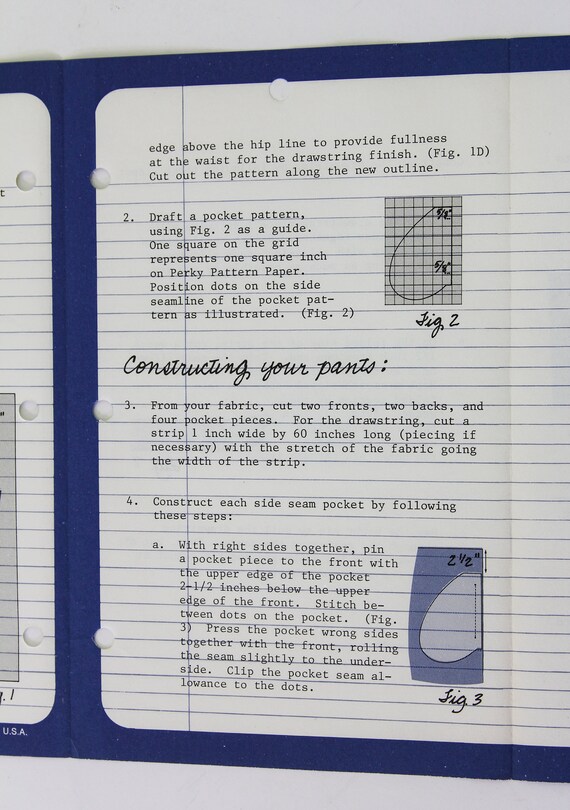 edge above the hip line to provide fullness
at the waist for the drawstring finish. (Fig. 1D)
Cut out the pattern along the new outline.
2. Draft a pocket pattern,
using Fig. 2 as a guide.
One square on the grid
represents one square inch
on Perky Pattern Paper.
Position dots on the side
seamline of the pocket pat-
tern as illustrated. (Fig. 2)
5/8"
5/8"
Fig. 2
Constructing your pants:
3. From your fabric, cut two fronts, two backs, and
four pocket pieces. For the drawstring, cut a
strip 1 inch wide by 60 inches long (piecing if
necessary) with the stretch of the fabric going
the width of the strip.
4. Construct each side seam pocket by following
these steps:
a. With right sides together, pin
a pocket piece to the front with
the upper edge of the pocket
2-1/2 inches below the upper
edge of the front. Stitch be-
tween dots on the pocket. (Fig.
3) Press the pocket wrong sides
together with the front, rolling
the seam slightly to the under-
side. Clip the pocket seam al-
lowance to the dots.
2 1/2"
Fig. 3
U.S.A.